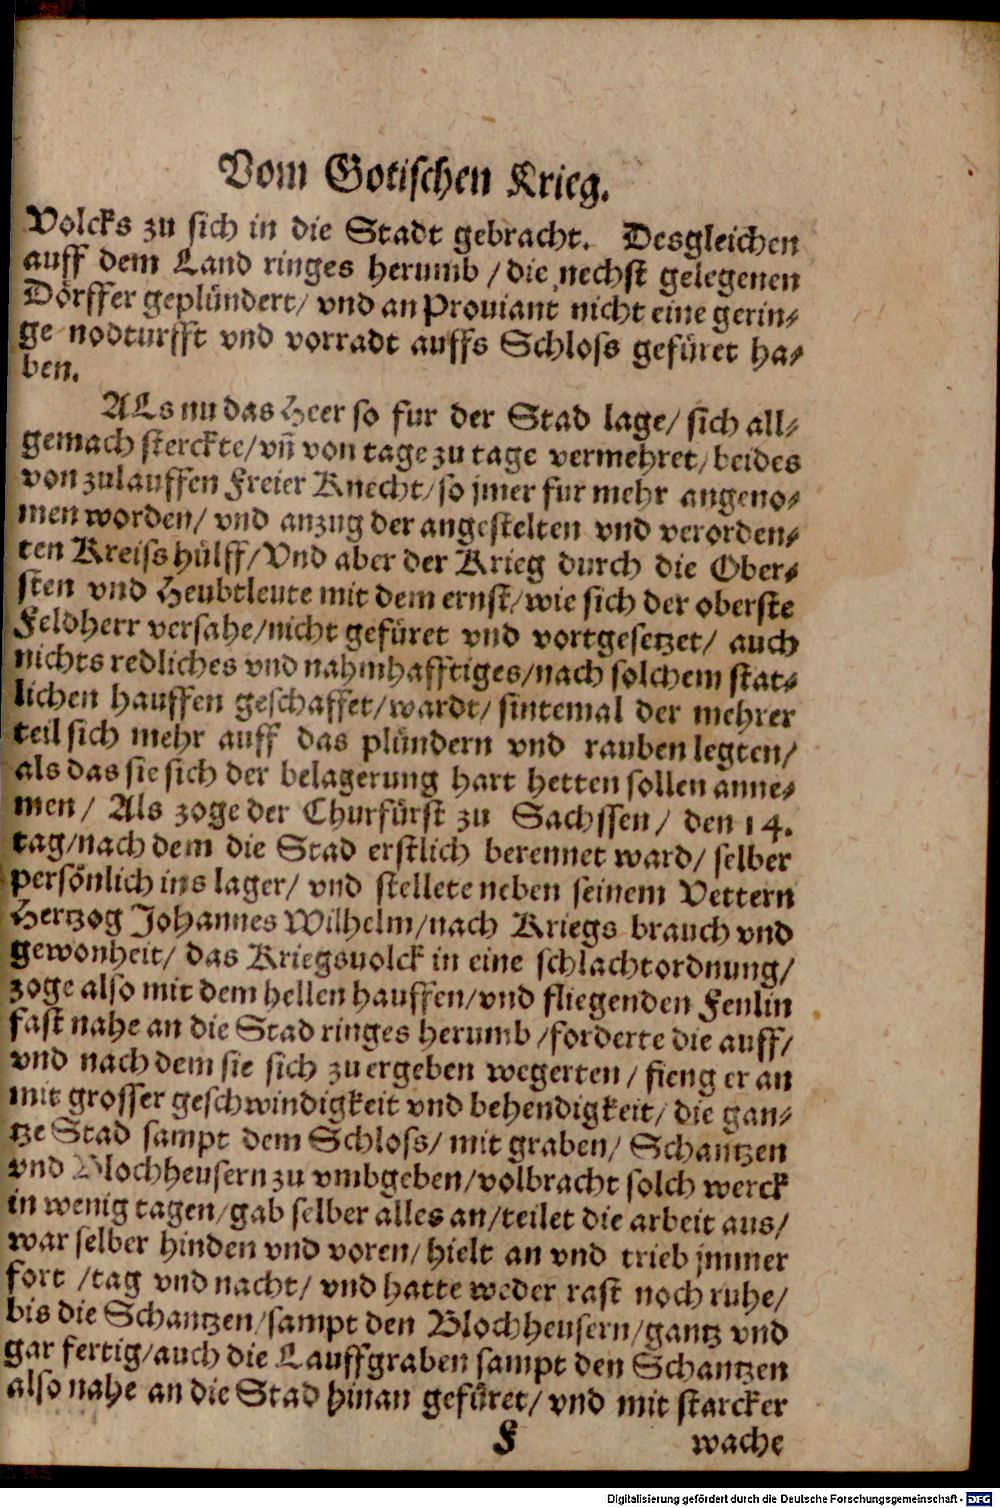 Vom Gotischen Krieg.
Volcks zu sich in die Stadt gebracht. Desgleichen
auff dem Land ringes herumb / die nechst gelegenen
Dörffer geplündert/ vnd an Prouiant nicht eine gerin⸗
ge nodturfft vnd vorradt auffs Schloss gefüret ha⸗
ben.
ALs nu das Heer so fur der Stad lage/ sich all⸗
gemach sterckte/ vñ von tage zu tage vermehret/ beides
von zulauffen Freier Knecht/ so jmer fur mehr angeno⸗
men worden/ vnd anzug der angestelten vnd verorden⸗
ten Kreiss hülff/ Vnd aber der Krieg durch die Ober⸗
sten vnd Heubtleute mit dem ernst/ wie sich der oberste
Feldherr versahe/ nicht gefüret vnd vortgesetzet/ auch
nichts redliches vnd nahmhafftiges/ nach solchem stat⸗
lichen hauffen geschaffet/ wardt/ sintemal der mehrer
teil sich mehr auff das plündern vnd rauben legten/
als das sie sich der belagerung hart hetten sollen anne⸗
men/ Als zoge der Churfürst zu Sachssen/ den 14.
tag/ nach dem die Stad erstlich berennet ward/ selber
persönlich ins lager/ vnd stellete neben seinem Vettern
Hertzog Johannes Wilhelm/ nach Kriegs brauch vnd
gewonheit/ das Kriegsuolck in eine schlachtordnung/
zoge also mit dem hellen hauffen/ vnd fliegenden Fenlin
fast nahe an die Stad ringes herumb / forderte die auff/
vnd nach dem sie sich zu ergeben wegerten / fieng er an
mit grosser geschwindigkeit vnd behendigkeit/ die gan⸗
tze Stad sampt dem Schloss/ mit graben/ Schantzen
vnd Blochheusern zu vmbgeben/ volbracht solch werck
in wenig tagen/ gab selber alles an/ teilet die arbeit aus/
war selber hinden vnd voren/ hielt an vnd trieb jmmer
fort / tag vnd nacht/ vnd hatte weder rast noch ruhe/
bis die Schantzen/ sampt den Blochheusern/ gantz vnd
gar fertig/ auch die Lauffgraben sampt den Schantzen
also nahe an die Stad hinan gefüret/ vnd mit starcker
F wache
Digitalisierung gefördert durch die Deutsche Forschungsgemeinschaft - DFG